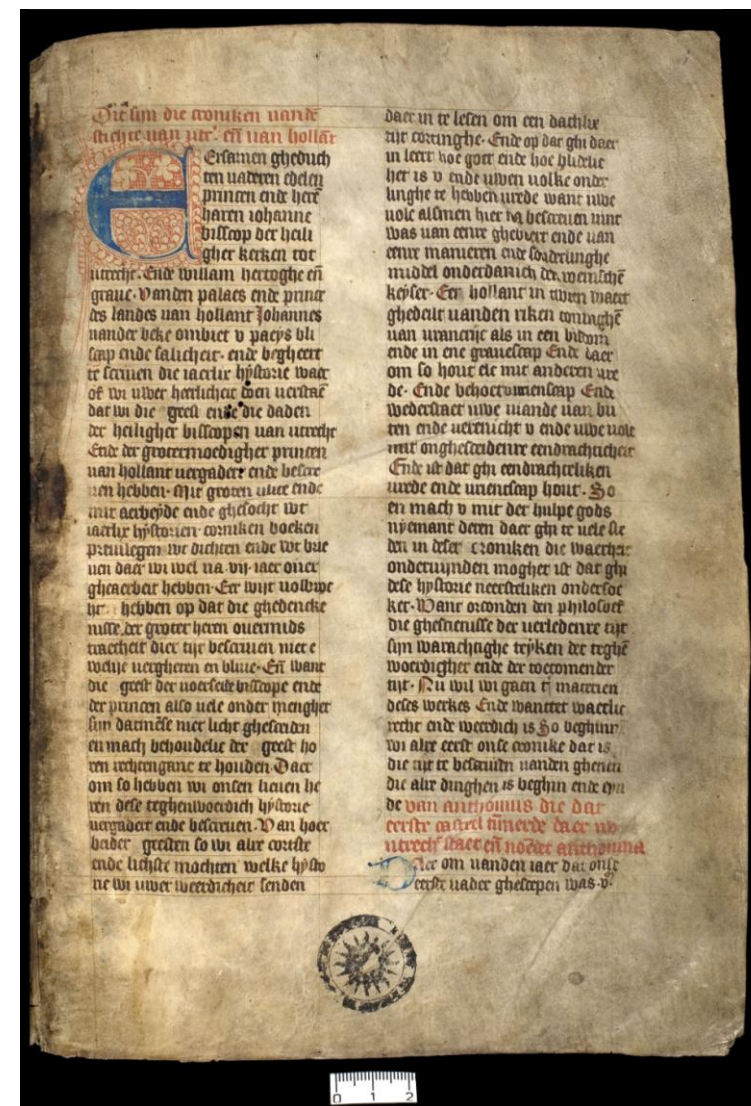 Dit sijn die croniken vande
stichte van utr'. eñ van hollant
Ersamen gheduch
ten vaderen edelen
princen ende here
haren iohanne
bisscop der heili
gher kerken tot
utrecht. Ende willam hertoghe eñ
graue. Vanden palaes ende prince
des landes van hollant Johannes
vander beke ombiet v paeys bli
scap ende salicheit. ende begheert
te scriuen die iaerlix hystorie waer
of wi uwer heerlicheit doen verstaē
dat wi die geest ende die daden
der heiligher bisscopen van utrecht
Ende der grotermoedigher princen
van hollant vergadert ende bescre
uen hebben. Mit groten vlite ende
mit aerbeyde ende ghesocht wt
iaerlix hystorien coroniken boeken
preuilegen wt dichten ende wt brie
uen daer wi wel na .vij. iaer ouer
ghearbeit hebben. Eer wijt volbroc
ht hebben op dat die ghedencke
nisse der groter heren ouermids
traecheit dier tijt bescriuen niet e
welijc vergheten en bliue. Eñ want
die geest der voerseide bisscope ende
der princen also vele onder mengher
sijn datmēse niet licht ghesceiden
en mach behoudelic der geest ho
ren rechtenganc te houden. Daer
om so hebben wi onsen lieuen he
ren dese teghenwoerdich hystorie
vergadert ende bescreuen. Van hoer
beider geesten so wi alre cortste
ende lichste mochten welke hysto
rie wi uwer weerdicheit senden
daer in te lesen om een dachlix
tijt cortinghe. Ende op dat ghi daer
in leert hoe goet ende hoe blidelic
het is v ende uwen volke onder
linghe te hebben vrede want uwe
volc alsmen hier na bescreuen vint
was van eenre gheboert ende van
eenre manieren ende sonderlinghe
middel onderdanich den romschē
keyser. Eer hollant in twen waert
ghedeilt vanden riken coninghē
van vrancrijc als in een bisdom
ende in ene grauescap Ende daer
om so hout elc mit anderen vre
de. Ende behoet vrienscap Ende
wederstaet uwe viande van bu
ten ende verenicht v ende uwe volc
mit onghesceidenre eendrachticheit
Ende ist dat ghi eendrachteliken
vrede ende vrientscap hout. So
en mach v mit der hulpe gods
nyemant deren daer ghi te vele ste
den in deser croniken die waerheit
onderuijnden moghet ist dat ghi
dese hystorie neersteliken ondersoe
ket. Want orconden den philosoef
die ghescienisse der verledenre tijt
sijn warachtighe teyken der teghē
woerdigher ende der toecomender
tijt. Nu wil wi gaen tj materien
deses werkes Ende wanttet waerlic
recht ende weerdich is So beghint
wi alre eerst onse cronike dat is
die tijt te bescriuen vanden ghenen
die alre dinghen is beghin ende eyn
de van anthonius die dat
eerste castel tīmerde daer nv
utrech' staet eñ noēdet anthonina
Hier om vanden iaer dat onse
eerste vader ghescepen was .v.
0 1 2